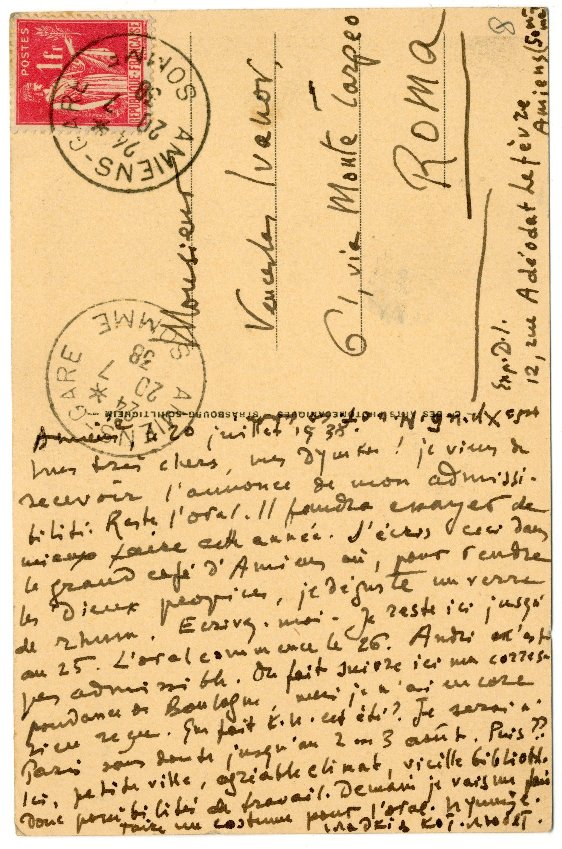 POSTES
1 Fr
REPUBLIQUE-FRANCAISE
AMIENS-GARE
24 *
20 7
38
SOMME
AMIENS-GARE
24 *
20 7
38
SOMME
8
Monsieur
Venceslas Ivanov,
61, via Monte Tarpeo
ROMA
Exp. D. I.
12, rue Adéodat Lefèvre
Amiens (Somme
DES ARTS PHOTOMÉCANIQUES STRASBOURG-SCHILTIGHEIM
Amiens, le 20 juillet 1938.
Mes très chers, mes ! je viens de
recevoir l'annonce de mon admissi-
bilité. Reste l'oral. Il faudra essayer de
mieux faire cette année. J'écris ceci dans
le grand café d'Amiens où, pour rendre
les Dieux propices, je déguste un verre
de rhum. Ecrivez-moi. Je reste ici jusqu'
au 25. L'oral commence le 26. André n'est
pas admissible. On fait suivre ici ma corres-
pondance de Boulogne, mais je n'ai encore
rien reçu. Que fait cet été? Je serai à
Paris sans doute jusqu'au 2 ou 3 août. Puis??
Ici, petite ville, agréable climat, vieille biblioth.
donc possibilités de travail. Demain je vais me faire
faire un costume pour l'oral.